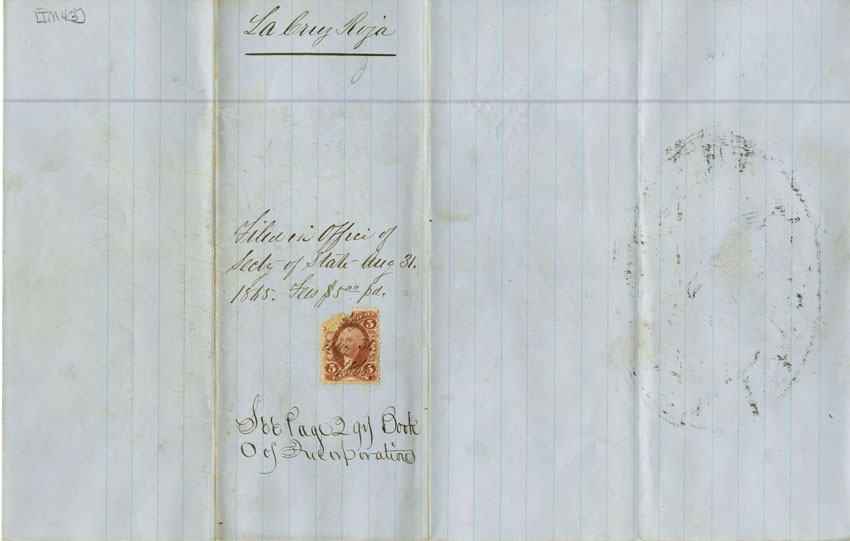 [TM 43]
La Cruz Roja
Filed in Office of
Secty of State Aug 31.
1865. Fees $5.00 pd.
5
Aug 31
5 5
See Page 297 Book
O of Incorporations